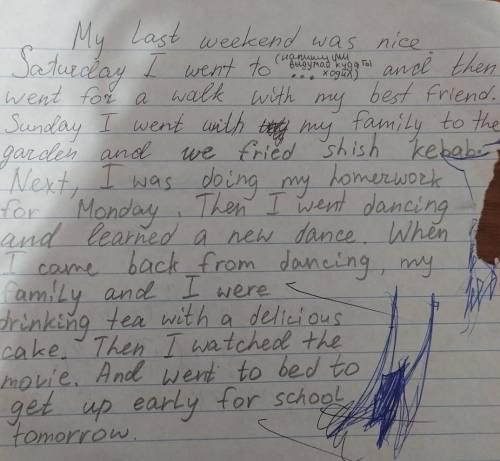 My last weekend was nice.
Saturday I went to (напиши или выдумай куда ты ... ходил) and then
went for a walk with my best friend.
Sunday I went with my family to the
garden and we fried shish kebab.
Next, I was doing my homerwork
for Monday. Then I went dancing
and learned a new dance. When
I came back from dancing, my
family and I were
drinking tea with a delicious
cake. Then I watched the
movie. And went to bed to
get up early for school
tomorrow.